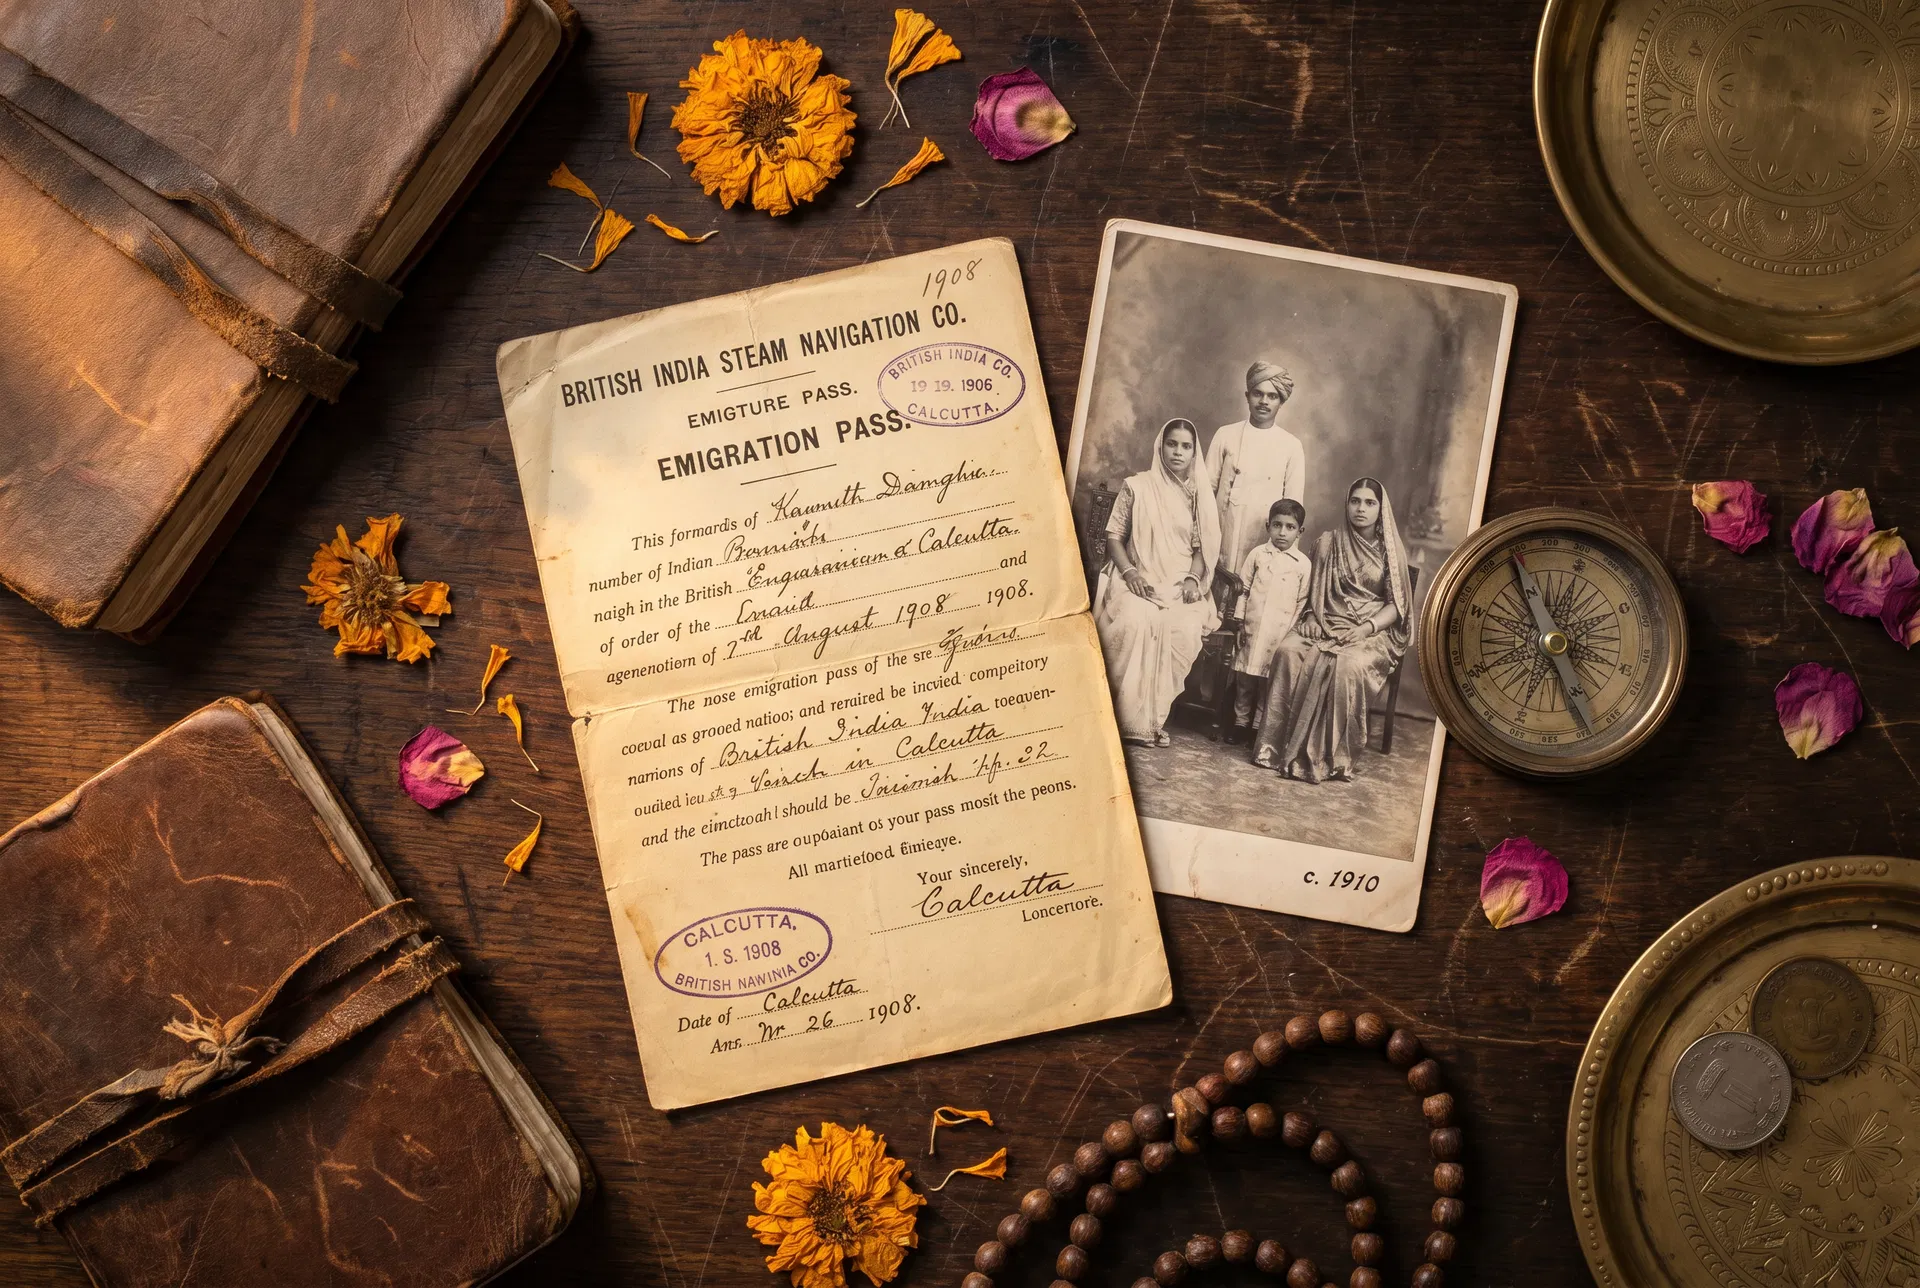 1908
BRITISH INDIA STEAM NAVIGATION CO.
EMIGTURE PASS.
BRITISH INDIA CO.
19 19. 1906
CALCUTTA.
EMIGRATION PASS.
This formards of Kaumith Damghie
number of Indian
naigh in the British Calcutta.
of order of the and
agenenotiom of August 1908 1908.
The nose emigration pass of the sre
coeval as grooed natioo; and reraired be incvied competitory
namions of British India India toeaven-
ouaited ieu in Calcutta
and the eimctcoah should be pp. 32
The pass are oupoaiant os your pass mosit the peons.
All martiefood Einieqve.
Your sincerely,
Calcutta
Loncertore.
CALCUTTA,
1. S. 1908
BRITISH NAWINIA CO.
Date of Calcutta
Ans. Nr 26 1908.
c. 1910
N
W